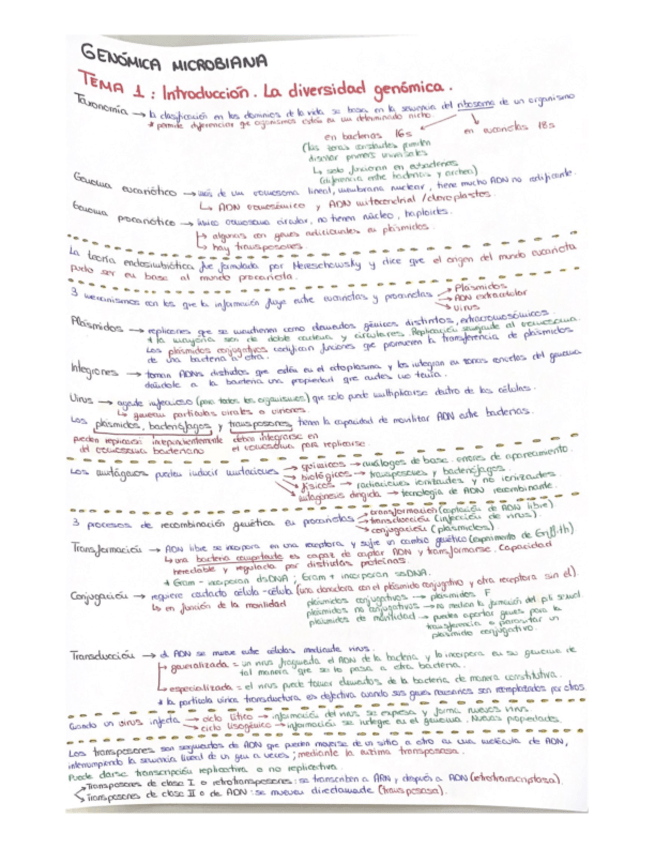 GENÓMICA MICROBIANA
TEMA 1: Introducción. La diversidad genómica.
Taxonomía → la clasificación en los dominios de la vida se basa en la secuencia del ribosoma de un organismo
* permite diferenciar que organismos están en un determinado nicho
en bacterias 16s
en eucariotas 18s
(las zonas constantes permiten
diseñar primers universales
↳ solo funcionan en eubacterias
(diferencia entre bacterias y archea)
Genoma eucariótico → más de un cromosoma lineal, membrana nuclear, tiene mucho ADN no codificante.
↳ ADN cromosómico y ADN mitocondrial / cloroplastos.
Genoma procariótico → único cromosoma circular, no tienen núcleo, haploides.
↳ algunas con genes adicionales en plásmidos.
↳ hay transposones.
La teoría endosimbiótica fue formulada por Mereschowsky y dice que el origen del mundo eucariota
pudo ser en base al mundo procariota.
3 mecanismos con los que la información fluye entre eucariotas y procariotas
→ Plásmidos
→ ADN extracelular
→ virus
Plásmidos → replicones que se mantienen como elementos génicos distintos, extracromosómicos.
* la mayoría son de doble cadena y circulares. Replicación semejante al cromosoma.
Los plásmidos conjugativos codifican funciones que promueven la transferencia de plásmidos
de una bacteria a otra.
Integrones → toman ADNs distintos que están en el citoplasma y los integran en zonas concretas del genoma
dándole a la bacteria una propiedad que antes no tenía.
Virus → agente infeccioso (para todos los organismos) que solo puede multiplicarse dentro de las células.
↳ generan partículas virales o viriones.
Los plásmidos, bacteriófagos y transposones tienen la capacidad de movilizar ADN entre bacterias.
pueden replicarse independientemente
del cromosoma bacteriano
deben integrarse en
el cromosoma para replicarse.
Los mutágenos pueden inducir mutaciones
→ químicos → análogos de base. errores de apareamiento.
→ biológicos → transposones y bacteriófagos.
→ físicos → radiaciones ionizantes y no ionizantes.
→ mutagénesis dirigida → tecnología de ADN recombinante.
3 procesos de recombinación genética en procariotas
→ transformación (captación de ADN libre)
→ transducción (infección de virus)
→ conjugación (plásmidos)
Transformación → ADN libre se incorpora en una receptora y sufre un cambio genético (experimento de Griffith)
↳ una bacteria competente es capaz de captar ADN y transformarse. Capacidad
heredable y regulada por distintas proteínas.
* Gram - incorporan dsDNA; Gram + incorporan ssDNA.
Conjugación → requiere contacto célula-célula (una donadora con el plásmido conjugativo y otra receptora sin él).
↳ en función de la movilidad
plásmidos conjugativos → plásmidos F
plásmidos no conjugativos → no median la formación del pili sexual
plásmidos de movilidad → pueden aportar genes para la
transferencia o parasitar un
plásmido conjugativo.
Transducción → el ADN se mueve entre células mediante virus.
↳ generalizada = un virus fragmenta el ADN de la bacteria y lo incorpora en su genoma de
tal manera que se lo pasa a otra bacteria.
↳ especializada = el virus puede tomar elementos de la bacteria de manera constitutiva.
* la partícula vírica transductora es defectiva cuando sus genes han sido reemplazados por otros
Cuando un virus infecta → ciclo lítico → información del virus se expresa y forma nuevos virus
→ ciclo lisogénico → información se integra en el genoma. Nuevas propiedades.
Los transposones son segmentos de ADN que pueden moverse de un sitio a otro en una molécula de ADN,
interrumpiendo la secuencia lineal de un gen a veces; mediante la enzima transposasa.
Puede darse transcripción replicativa o no replicativa.
→ Transposones de clase I o retrotransposones: se transcriben a ARN y después a ADN (retrotranscriptasa).
→ Transposones de clase II o de ADN: se mueven directamente (transposasa).